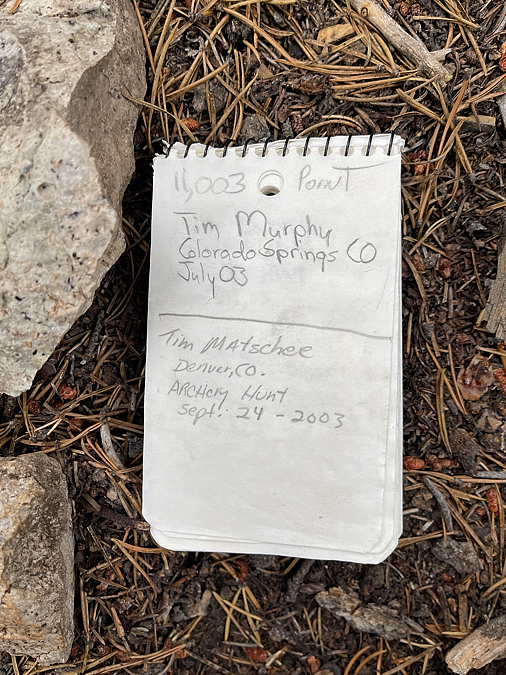 11,003 Point
Tim Murphy
Colorado Springs CO
July 03
Tim Matschee
Denver, CO.
Archery Hunt
Sept. 24 - 2003